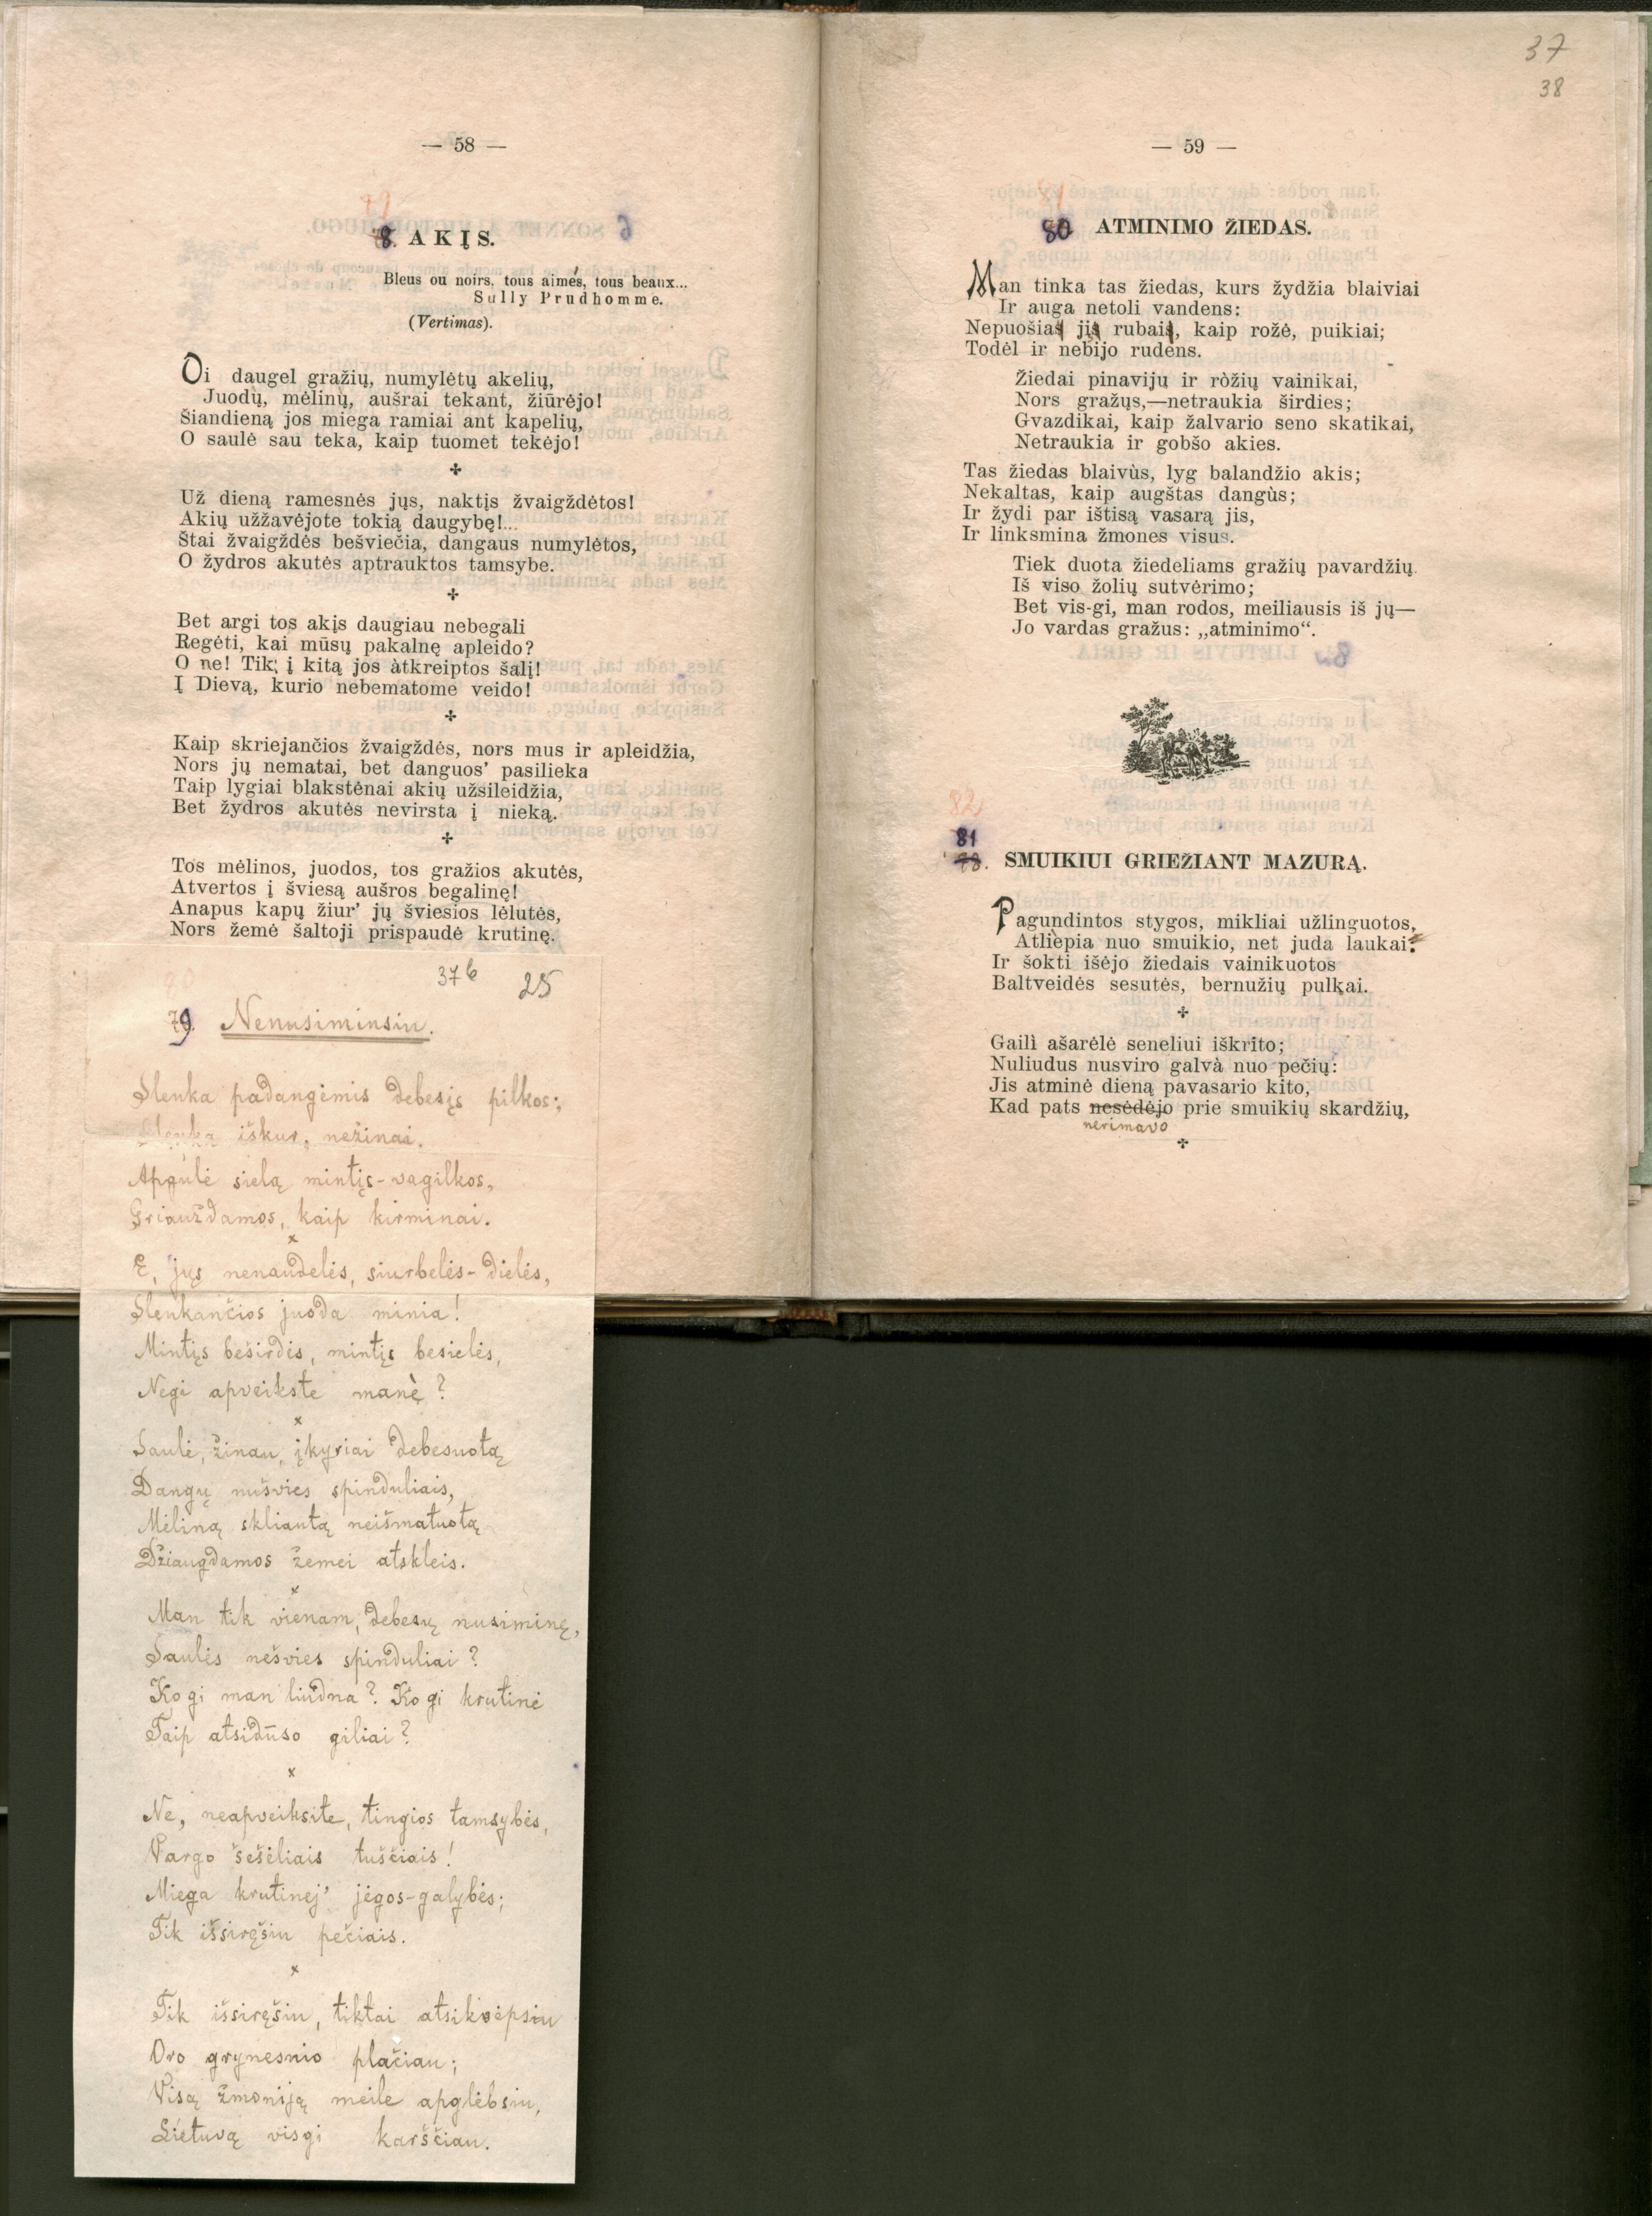 — 58 —
79
8. AKĮS.
Bleus ou noirs, tous aimés, tous beaux...
Sully Prudhomme.
(Vertimas).
Oi daugel gražių, numylėtų akelių,
Juodų, mėlinų, aušrai tekant, žiūrėjo!
Šiandieną jos miega ramiai ant kapelių,
O saulė sau teka, kaip tuomet tekėjo!
Už dieną ramesnės jųs, naktįs žvaigždėtos!
Akių užžavėjote tokią daugybę!...
Štai žvaigždės bešviečia, dangaus numylėtos,
O žydros akutės aptrauktos tamsybe.
Bet argi tos akįs daugiau nebegali
Regėti, kai mūsų pakalnę apleido?
O ne! Tik į kitą jos àtkreiptos šalį!
Į Dievą, kurio nebematome veido!
Kaip skriejančios žvaigždės, nors mus ir apleidžia,
Nors jų nematai, bet danguos’ pasilieka
Taip lygiai blakstėnai akių užsileidžia,
Bet žydros akutės nevirsta į nieką.
Tos mėlinos, juodos, tos gražios akutės,
Atvertos į šviesą aušros begalinę!
Anapus kapų žiur’ jų šviesios lėlutės,
Nors žemė šaltoji prispaudė krutinę.
37b 25
80
79. Nenusiminsiu.
Slenka padangėmis debesįs pilkos;
Slenka iškur, nežinai.
Apgulė sielą mintįs-vagilkos,
Griauždamos, kaip kirminai.
x
E, jųs nenaudėlės, siurbelės-dielės,
Slenkančios juoda minia!
Mintįs beširdės, mintįs besielės,
Negi apveikste manè?
x
Saulė, žinau, įkyriai debesuotą
Dangų nušvies spinduliais,
Mėliną skliautą neišmatuotą
Džiaugdamos žemei atskleis.
x
Man tik vienam, debesų nusiminę,
Saulės nešvies spinduliai?
Ko gi man liudna? Ko gi krutinė
Taip atsidūso giliai?
x
Ne, neapveiksite, tingios tamsybės,
Vargo šešėliais tuščiais!
Miega krutinėj’ jėgos-galybės;
Tik išsiręšiu pečiais.
x
Tik išsiręšiu, tiktai atsikvėpsiu
Oro grynesnio plačiau;
Visą žmoniją meile apglėbsiu,
Lietuvą visgi karščiau.
37
38
— 59 —
81
80 ATMINIMO ŽIEDAS.
Man tinka tas žiedas, kurs žydžia blaiviai
Ir auga netoli vandens:
Nepuošias jis rubais, kaip rožė, puikiai;
Todėl ir nebijo rudens.
Žiedai pinavijų ir ròžių vainikai,
Nors gražųs,—netraukia širdies;
Gvazdikai, kaip žalvario seno skatikai,
Netraukia ir gobšo akies.
Tas žiedas blaivùs, lyg balandžio akis;
Nekaltas, kaip augštas dangùs;
Ir žydi par ištisą vasarą jis,
Ir linksmina žmones visus.
Tiek duota žiedeliams gražių pavardžių
Iš viso žolių sutvėrimo;
Bet vis-gi, man rodos, meiliausis iš jų—
Jo vardas gražus: „atminimo“.
82
81
78. SMUIKIUI GRIEŽIANT MAZURĄ.
Pagundintos stygos, mikliai užlinguotos,
Atliepia nuo smuikio, net juda laukai:
Ir šokti išėjo žiedais vainikuotos
Baltveidės sesutės, bernužių pulkai.
Gailì ašarėlė seneliui iškrito;
Nuliudus nusviro galvà nuo pečių:
Jis atminė dieną pavasario kito,
Kad pats nesėdėjo prie smuikių skardžių,
nerimavo